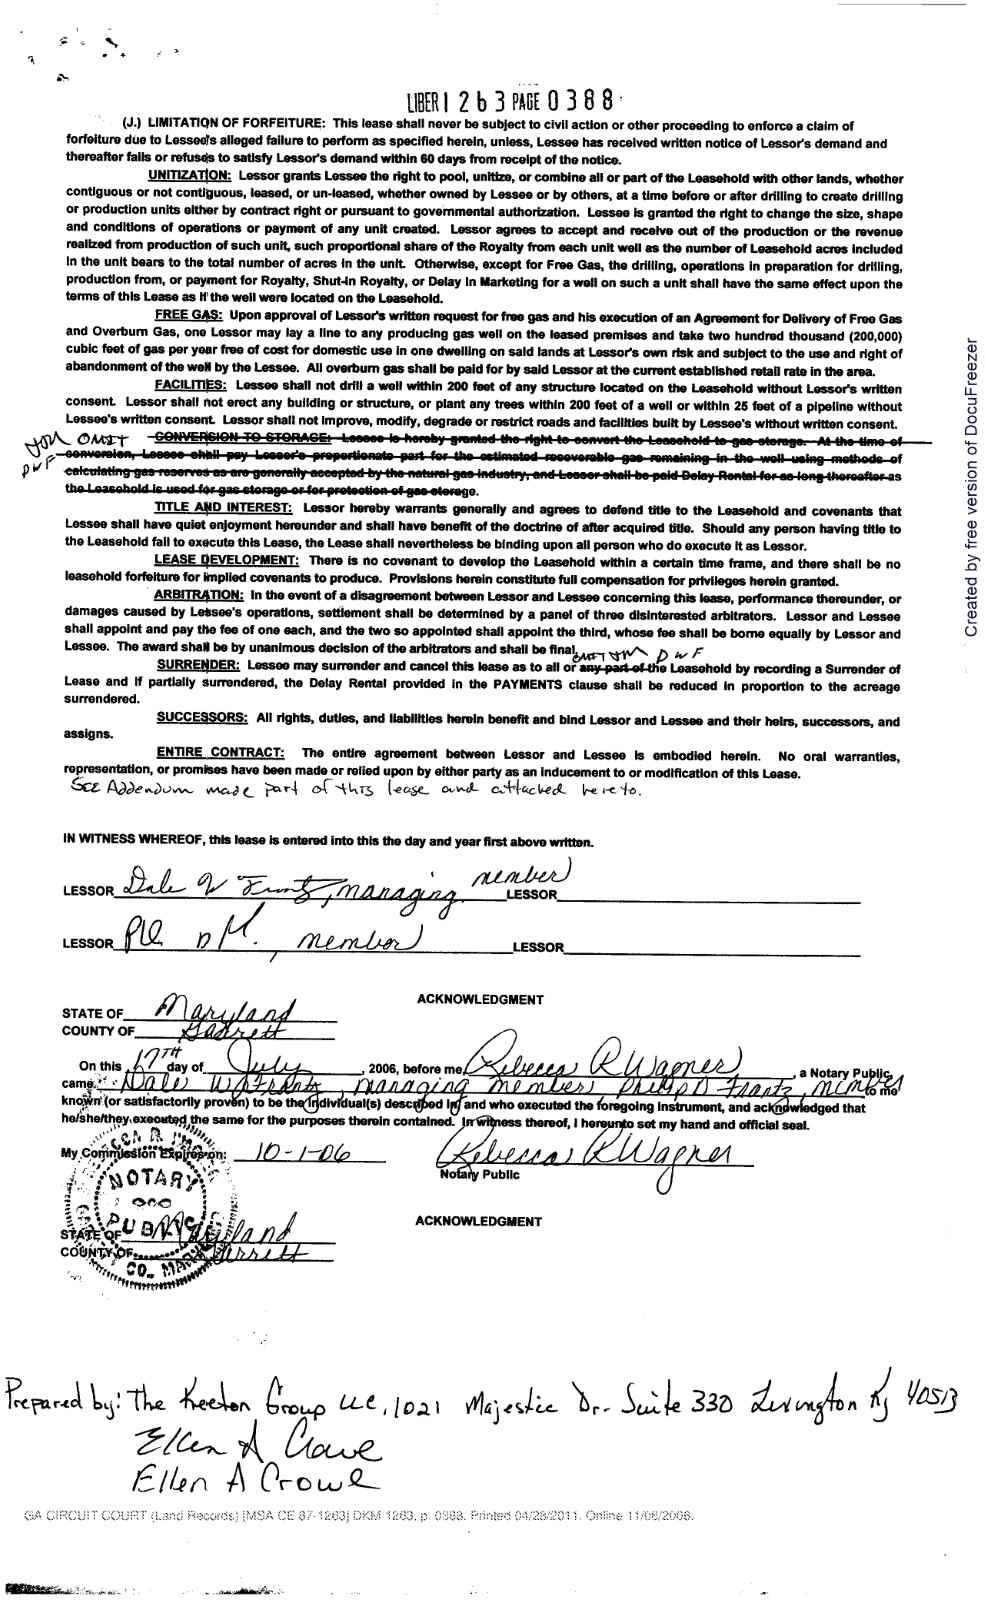 LIBER 1 2 6 3 PAGE 0 3 8 8
(J.) LIMITATION OF FORFEITURE: This lease shall never be subject to civil action or other proceeding to enforce a claim of
forfeiture due to Lessee's alleged failure to perform as specified herein, unless, Lessee has received written notice of Lessor's demand and
thereafter fails or refuses to satisfy Lessor's demand within 60 days from receipt of the notice.
UNITIZATION: Lessor grants Lessee the right to pool, unitize, or combine all or part of the Leasehold with other lands, whether
contiguous or not contiguous, leased, or un-leased, whether owned by Lessee or by others, at a time before or after drilling to create drilling
or production units either by contract right or pursuant to governmental authorization. Lessee is granted the right to change the size, shape
and conditions of operations or payment of any unit created. Lessor agrees to accept and receive out of the production or the revenue
realized from production of such unit, such proportional share of the Royalty from each unit well as the number of Leasehold acres included
in the unit bears to the total number of acres in the unit. Otherwise, except for Free Gas, the drilling, operations in preparation for drilling,
production from, or payment for Royalty, Shut-in Royalty, or Delay in Marketing for a well on such a unit shall have the same effect upon the
terms of this Lease as if the well were located on the Leasehold.
FREE GAS: Upon approval of Lessor's written request for free gas and his execution of an Agreement for Delivery of Free Gas
and Overburn Gas, one Lessor may lay a line to any producing gas well on the leased premises and take two hundred thousand (200,000)
cubic feet of gas per year free of cost for domestic use in one dwelling on said lands at Lessor's own risk and subject to the use and right of
abandonment of the well by the Lessee. All overburn gas shall be paid for by said Lessor at the current established retail rate in the area.
FACILITIES: Lessee shall not drill a well within 200 feet of any structure located on the Leasehold without Lessor's written
consent. Lessor shall not erect any building or structure, or plant any trees within 200 feet of a well or within 25 feet of a pipeline without
Lessee's written consent. Lessor shall not improve, modify, degrade or restrict roads and facilities built by Lessee's without written consent.
OMIT CONVERSION TO STORAGE: Lessee is hereby granted the right to convert the Leasehold to gas storage. At the time of
DWF conversion, Lessee shall pay Lessor's proportionate part for the estimated recoverable gas remaining in the well using methods of
calculating gas reserves as are generally accepted by the natural gas industry, and Lessor shall be paid Delay Rental for as long thereafter as
the Leasehold is used for gas storage or for protection of gas storage.
TITLE AND INTEREST: Lessor hereby warrants generally and agrees to defend title to the Leasehold and covenants that
Lessee shall have quiet enjoyment hereunder and shall have benefit of the doctrine of after acquired title. Should any person having title to
the Leasehold fail to execute this Lease, the Lease shall nevertheless be binding upon all person who do execute it as Lessor.
LEASE DEVELOPMENT: There is no covenant to develop the Leasehold within a certain time frame, and there shall be no
leasehold forfeiture for implied covenants to produce. Provisions herein constitute full compensation for privileges herein granted.
ARBITRATION: In the event of a disagreement between Lessor and Lessee concerning this lease, performance thereunder, or
damages caused by Lessee's operations, settlement shall be determined by a panel of three disinterested arbitrators. Lessor and Lessee
shall appoint and pay the fee of one each, and the two so appointed shall appoint the third, whose fee shall be borne equally by Lessor and
Lessee. The award shall be by unanimous decision of the arbitrators and shall be final.
OMIT DWF
SURRENDER: Lessee may surrender and cancel this lease as to all or any part of the Leasehold by recording a Surrender of
Lease and if partially surrendered, the Delay Rental provided in the PAYMENTS clause shall be reduced in proportion to the acreage
surrendered.
SUCCESSORS: All rights, duties, and liabilities herein benefit and bind Lessor and Lessee and their heirs, successors, and
assigns.
ENTIRE CONTRACT: The entire agreement between Lessor and Lessee is embodied herein. No oral warranties,
representation, or promises have been made or relied upon by either party as an inducement to or modification of this Lease.
See Addendum made part of this lease and attached hereto.
IN WITNESS WHEREOF, this lease is entered into this the day and year first above written.
LESSOR Dale W Frantz, managing member LESSOR
LESSOR , member LESSOR
ACKNOWLEDGMENT
STATE OF Maryland
COUNTY OF Garrett
On this 17TH day of July, 2006, before me, Rebecca R Wagner, a Notary Public,
came Dale W Frantz, managing member, Philip D Frantz, member to me
known (or satisfactorily proven) to be the individual(s) described in and who executed the foregoing instrument, and acknowledged that
he/she/they executed the same for the purposes therein contained. In witness thereof, I hereunto set my hand and official seal.
My Commission Expires on: 10-1-06 Rebecca R Wagner
Notary Public
NOTARY
PUBLIC
ACKNOWLEDGMENT
STATE OF Maryland
COUNTY OF Garrett
CO., MARY
Prepared by: The Keeton Group LLC, 1021 Majestic Dr. Suite 330 Lexington Ky 40513
Ellen A Crowe
Ellen A Crowe
GA CIRCUIT COURT (Land Records) [MSA CE 87-1263] DKM 1263, p. 0388. Printed 04/28/2011. Online 11/08/2006.
Created by free version of DocuFreezer